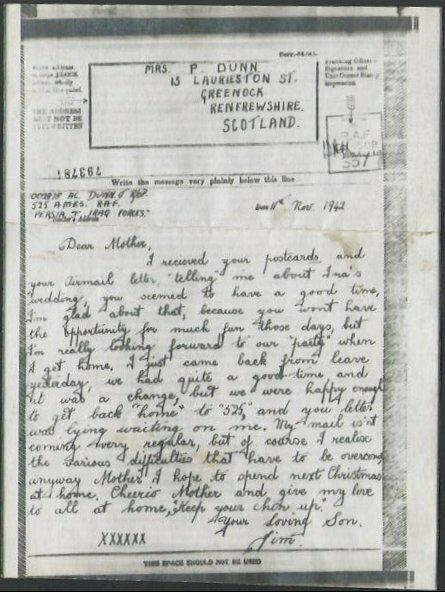 MRS. P. DUNN
13 LAURIESTON ST.
GREENOCK
RENFREWSHIRE.
SCOTLAND.
THE ADDRESS
MUST NOT BE
TYPEWRITTEN
R.A.F.
CENSOR
357
793781
Write the message very plainly below this line
DUNN J RAF
525 A.M.E.S. R.A.F.
"PERSIA & IRAQ FORCES."
Date 11th Nov. 1942
Dear Mother,
I recieved your postcards, and
your airmail letter, "telling" me about Ina's
wedding, you seemed to have a good time,
I'm glad about that, because you wont have
the opportunity for much fun those days, but
I'm really looking forward to our "party" when
I get home. I just came back from leave
yesterday, we had quite a good time and
it was a change, but we were happy enough
to get back "home" to "525," and you letter
was lying waiting on me. My mail is'nt
coming very regular, but of course I realise
the various difficulties that have to be overcome
anyway Mother. I hope to spend next Christmas
at home. Cheerio Mother and give my love
to all at home, "Keep your chin up."
Your Loving Son.
XXXXXX Jim.
THIS SPACE SHOULD NOT BE USED